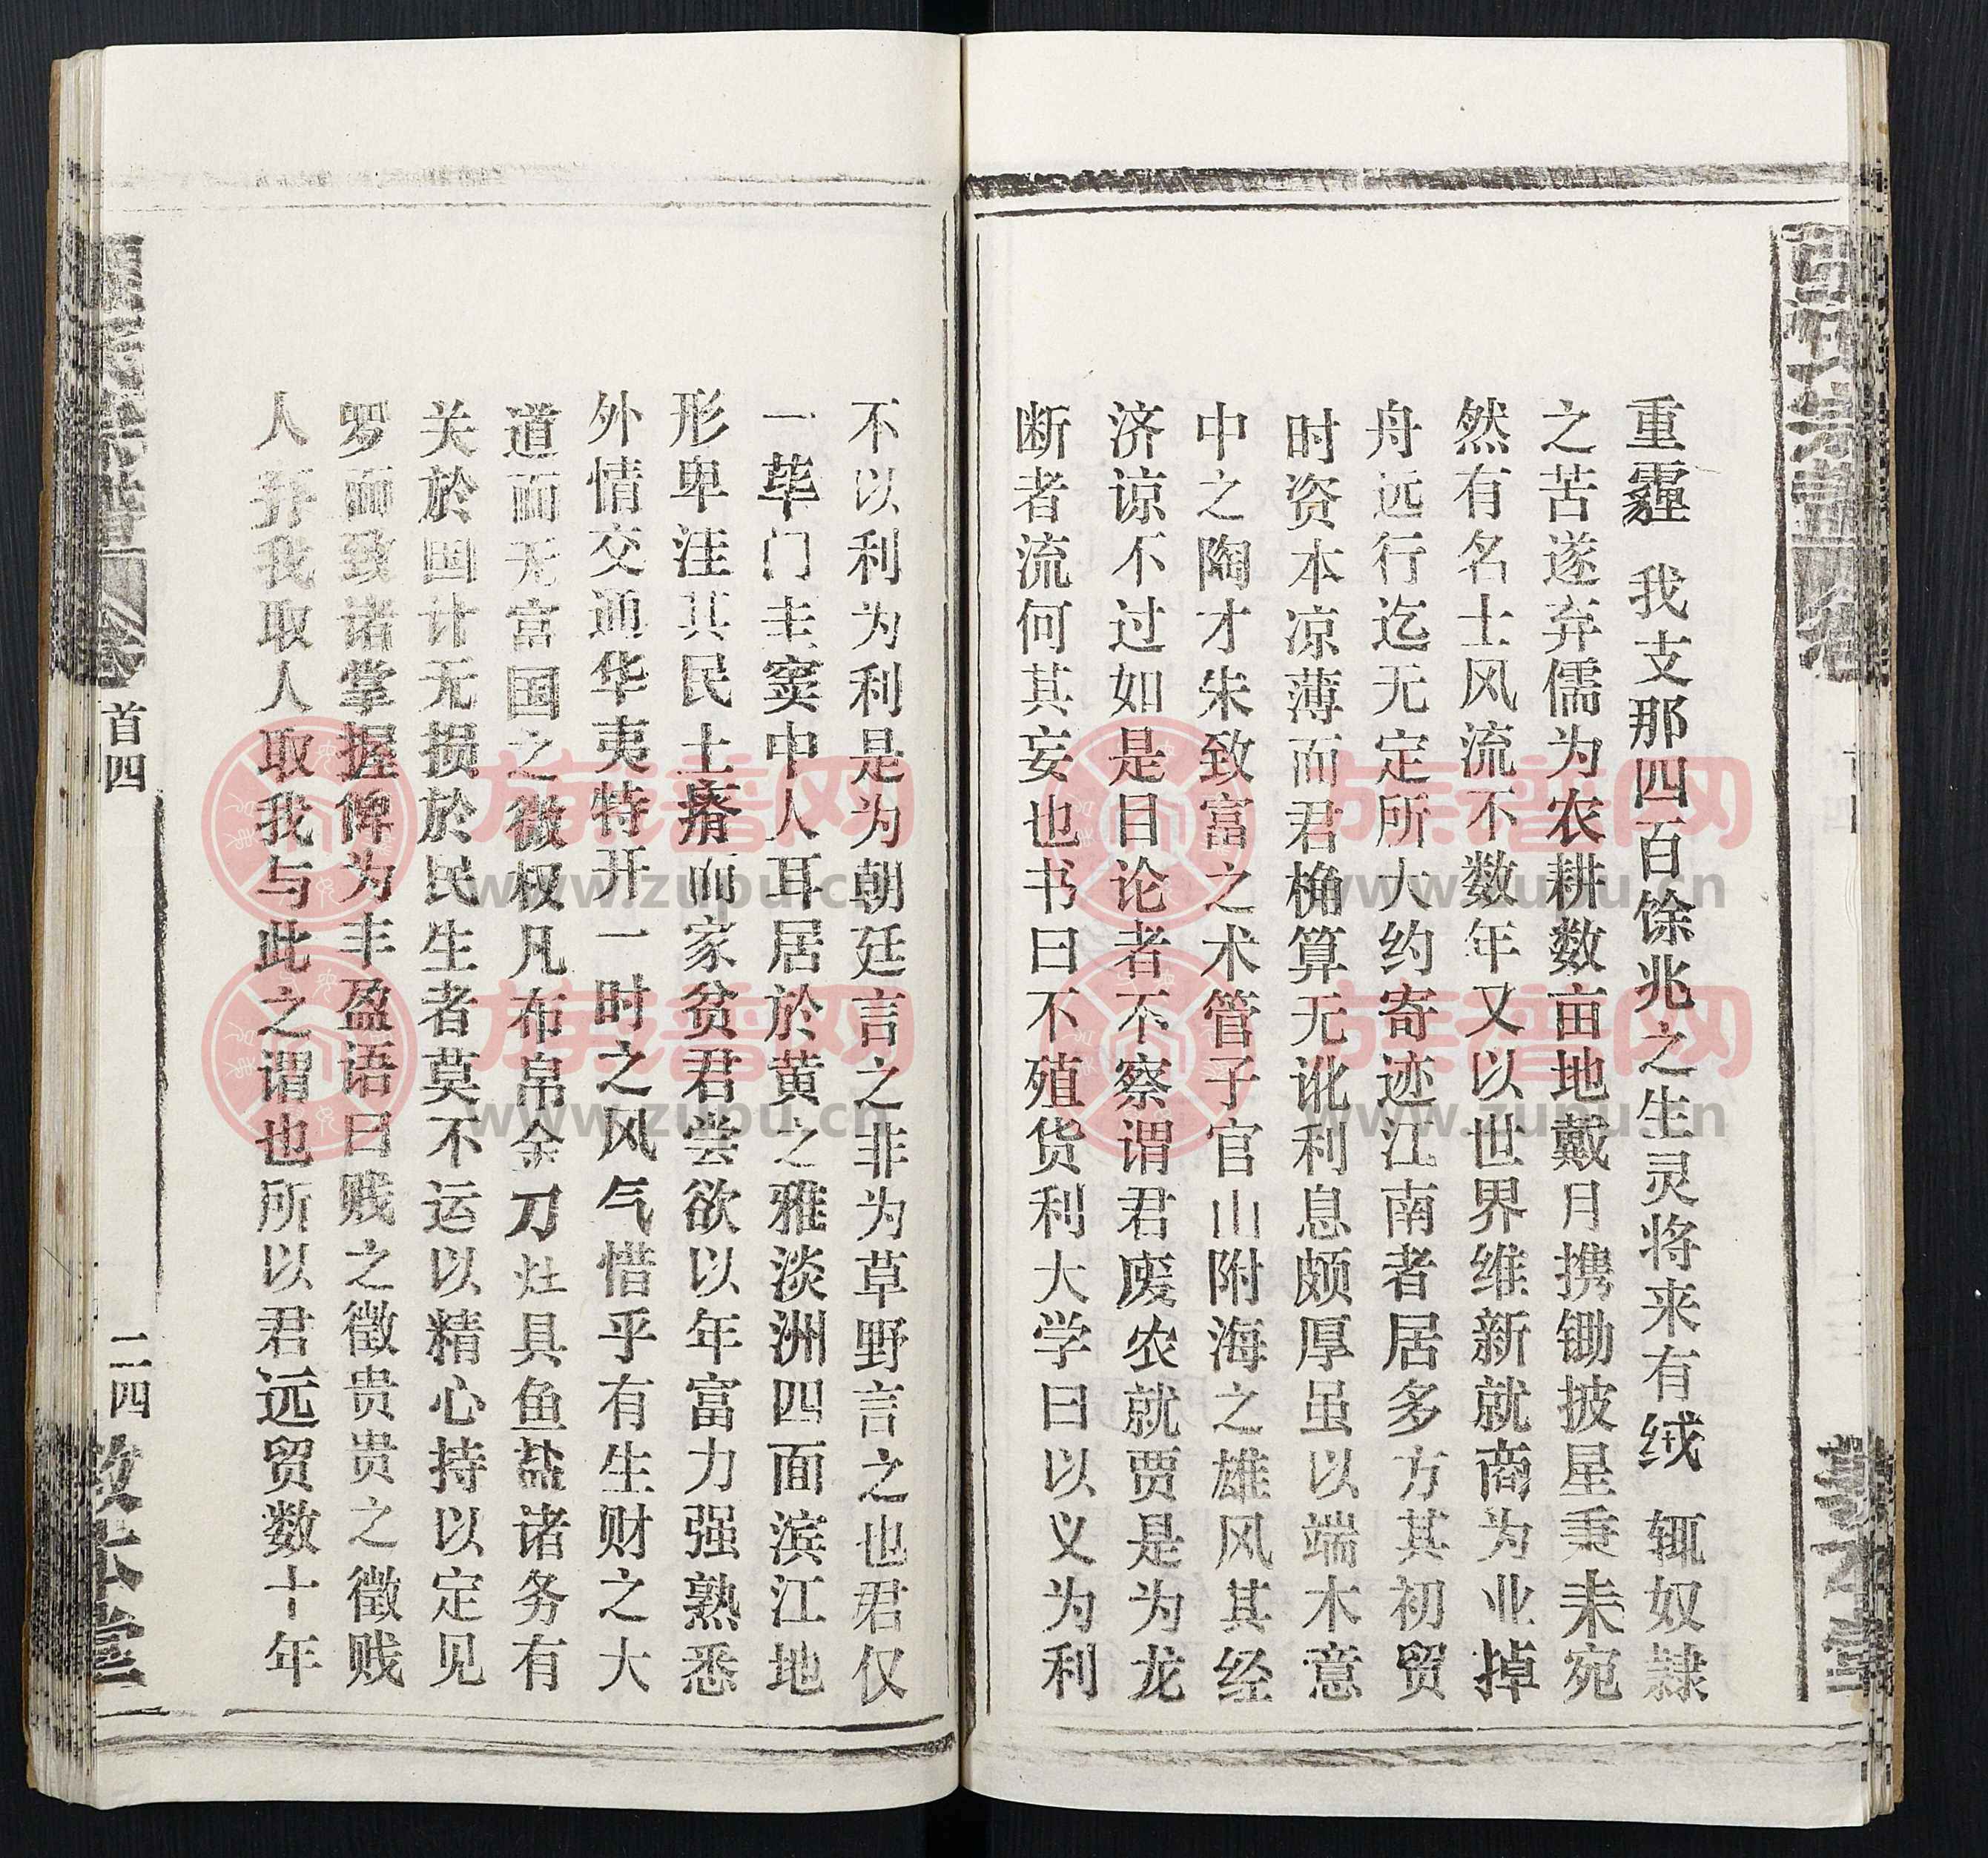 重霾 我支那四百馀兆之生灵将来有绒 辄奴隶
之苦遂弃儒为农耕数亩地戴月携锄披星秉耒宛
然有名士风流不数年又以世界维新就商为业掉
舟远行迄无定所大约寄迹江南者居多方其初贸
时资本凉薄而君桷算无讹利息颇厚虽以端木意
中之陶才朱致富之术管子官山附海之雄风其经
济谅不过如是目论者不察谓君废农就贾是为龙
断者流何其妄也书曰不殖货利大学曰以义为利
不以利为利是为朝廷言之非为草野言之也君仅
一荜门圭窦中人耳居於黄之雅淡洲四面滨江地
形卑洼其民土瘠而家贫君尝欲以年富力强熟悉
外情交通华夷特开一时之风气惜乎有生财之大
道而无富国之微权凡布帛金刀灶具鱼盐诸务有
关於国计无损於民生者莫不运以精心持以定见
罗而致诸掌握俾为丰盈语曰贱之徵贵贵之徵贱
人弃我取人取我与此之谓也所以君远贸数十年
首四
二四
敦本堂
族谱网
www.zupu.cn
族谱网
www.zupu.cn
族谱网
www.zupu.cn
族谱网
www.zupu.cn